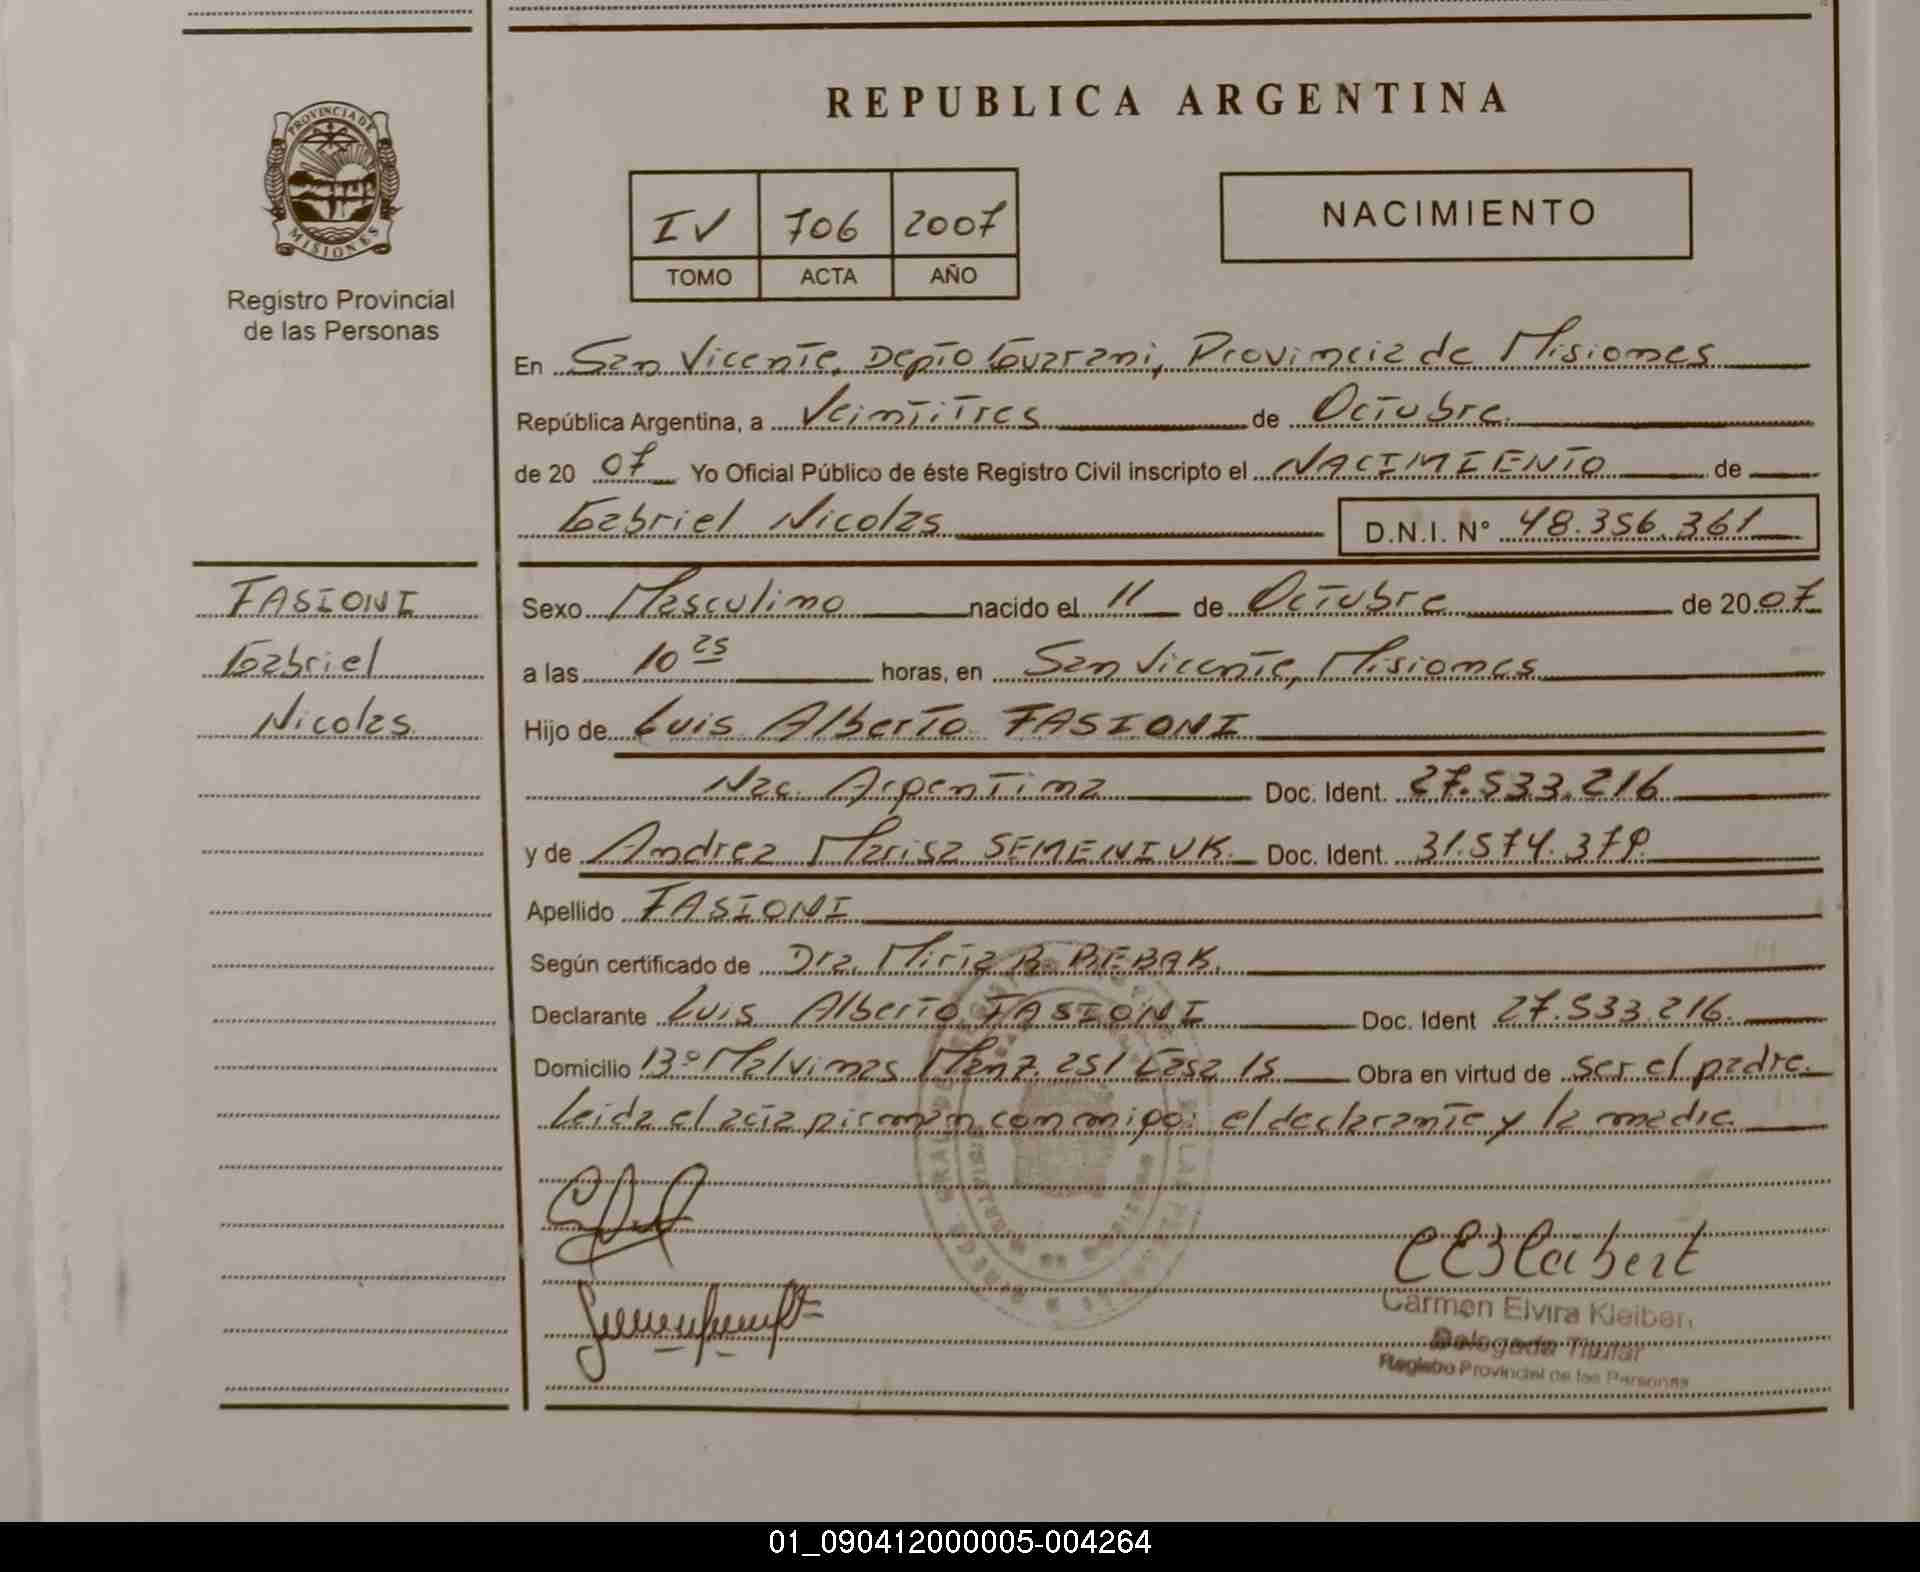 PROVINCIA DE
MISIONES
Registro Provincial
de las Personas
FASIONI
Gabriel
Nicolas
REPUBLICA ARGENTINA
IV 706 2007
TOMO ACTA AÑO
NACIMIENTO
En San Vicente, Depto Guarani, Provincia de Misiones
República Argentina, a Veintitres de Octubre
de 20 07 Yo Oficial Público de éste Registro Civil inscripto el NACIMIENTO de
Gabriel Nicolas D.N.I. N° 48.356.361
Sexo Masculino nacido el 11 de Octubre de 20 07
a las 10 25 horas, en San Vicente, Misiones
Hijo de Luis Alberto FASIONI
Nac. Argentina Doc. Ident. 27.533.216
y de Andrea Marisa SEMENIUK Doc. Ident. 31.574.379
Apellido FASIONI
Según certificado de Dra. Miria R. BEBAK
Declarante Luis Alberto FASIONI Doc. Ident 27.533.216
Domicilio Bº Malvinas Manz. 251 Casa 15 Obra en virtud de ser el padre.
Leida el acta firman conmigo: el declarante y la madre
CEKleibert
Carmen Elvira Kleibert
Delegada Titular
Registro Provincial de las Personas
01_090412000005-004264